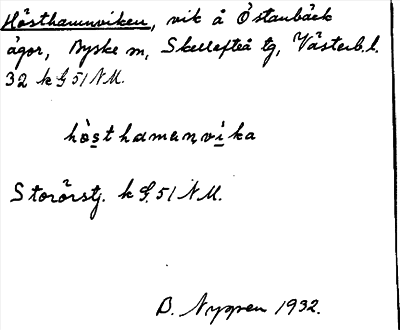 Hösthamnviken, vik å Östanbäck
ägor, Byske sn, Skellefteå tg, Västerb. l.
32 k G 51 NU.
hòsthamanvika
Storörstj. k G. 51 NU.
B. Nyppen 1932.